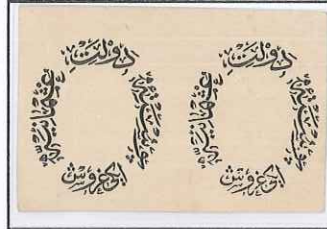 دولت
عثمانيه
ايكى غروش
دولت
عثمانيه
ايكى غروش